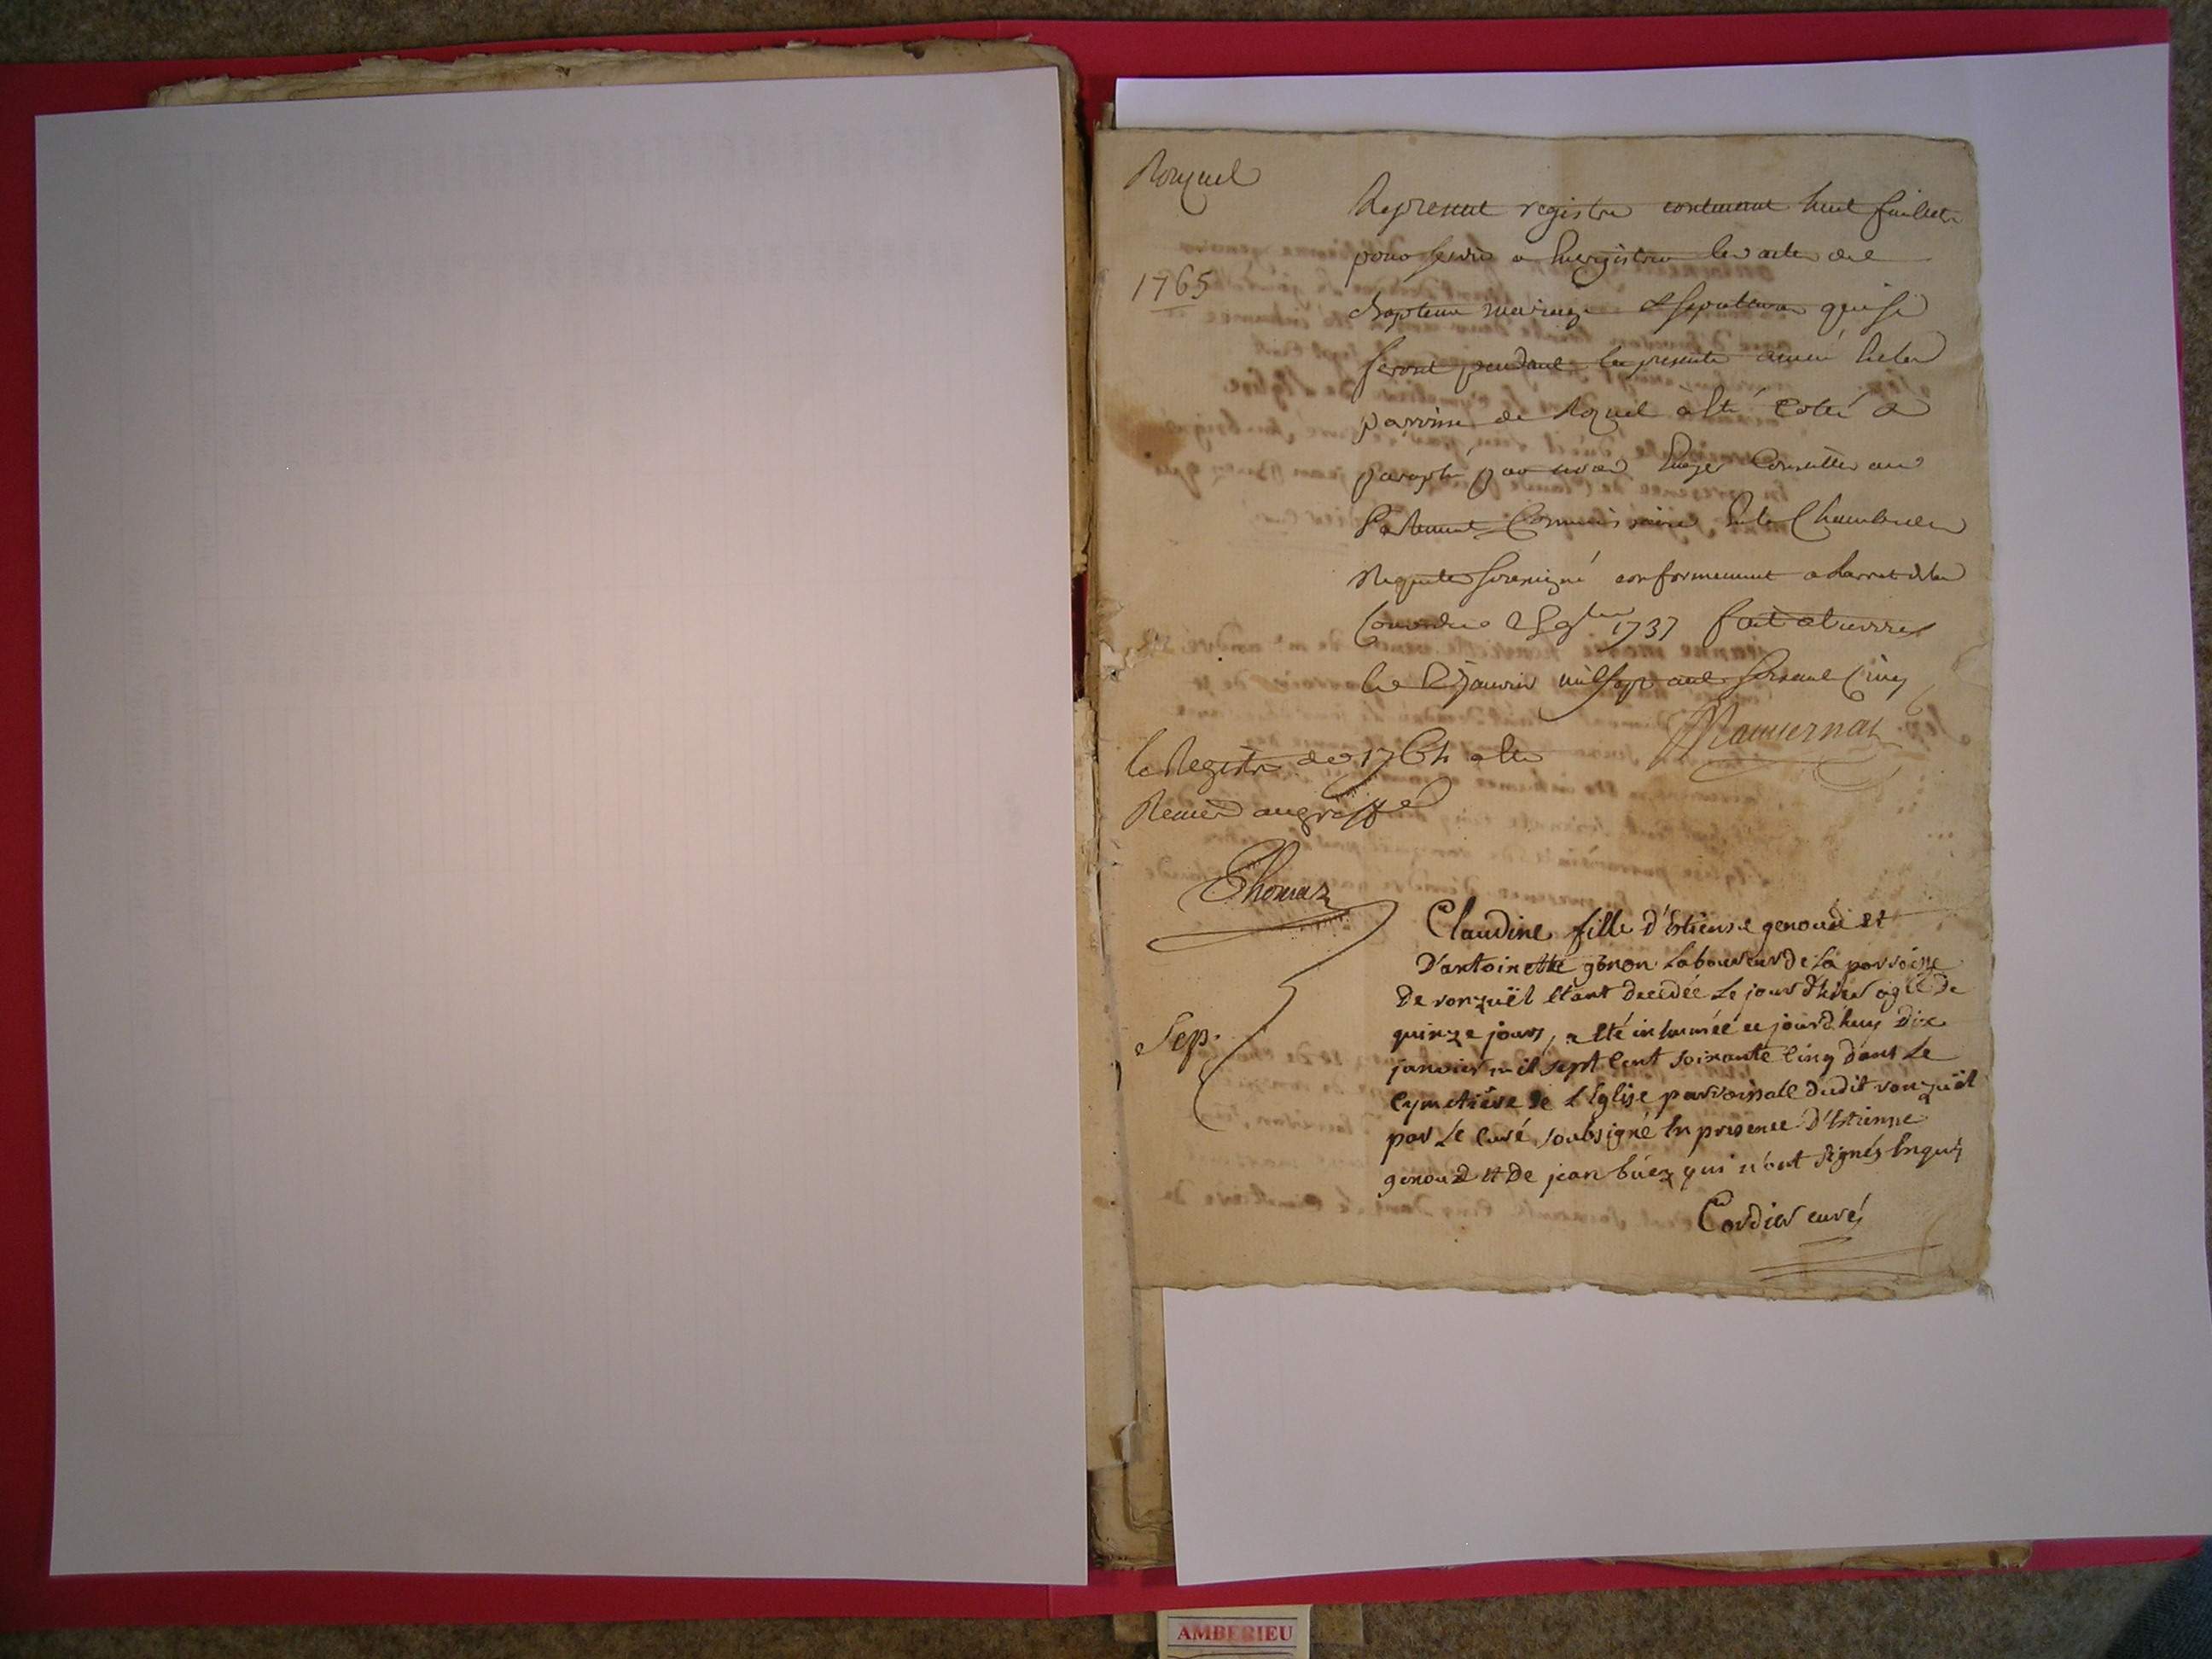 Ronzuel
1765
Le present registre contenant huit feuillets
pour servir a Enregistrer les actes de
Bapteme mariage et sepulture qui se
feront pendant la presente année En la
parroisse de Rozuel a esté Cotté et
paraphé par nous Conseiller au
Parlement Commissaire En la Chambre des
Requetes soussigné conformement a l'arret de la
Cour du 1737 fait a Trevoux
le janvier mil sept cent soixante Cinq
le Registre de 1764 a été
Remis au greffe
Thomas
Claudine fille d'Estienne genoud et
D'antoinette génon Laboureur de La parroisse
De ronzuël Etant decedée Le jour d'hier agée de
Sep.
quinze jours, a Eté inhumée ce jourd'huy Dix
janvier mil sept Cent soixante Cinq dans Le
Cymetiere de L'Eglise parroissiale dudit ronzuël
par Le Curé soubsigné En presence D'Estienne
genoud et De jean búez qui n'ont signés Enquis
Cordier curé
AMBERIEU